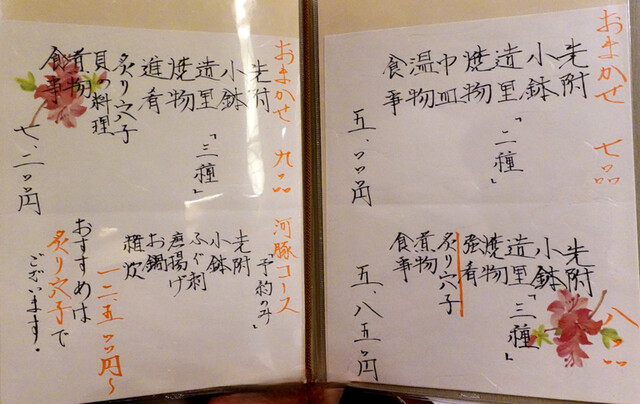 おまかせ 七品
先附
小鉢
造里「二種」
焼物
中皿
温物
食事
五、〇〇〇円
八品
先附
小鉢
造里「三種」
焼物
強肴
炙り穴子
煮物
食事
五、八五〇円
おまかせ 九品
先附
小鉢
造里「三種」
焼物
進肴
炙り穴子
貝の料理
煮物
食事
七、二〇〇円
河豚コース
「予約のみ」
先附
小鉢
ふぐ刺
唐揚げ
お鍋
雑炊
一二、五〇〇円〜
おすすめは
炙り穴子で
ございます。